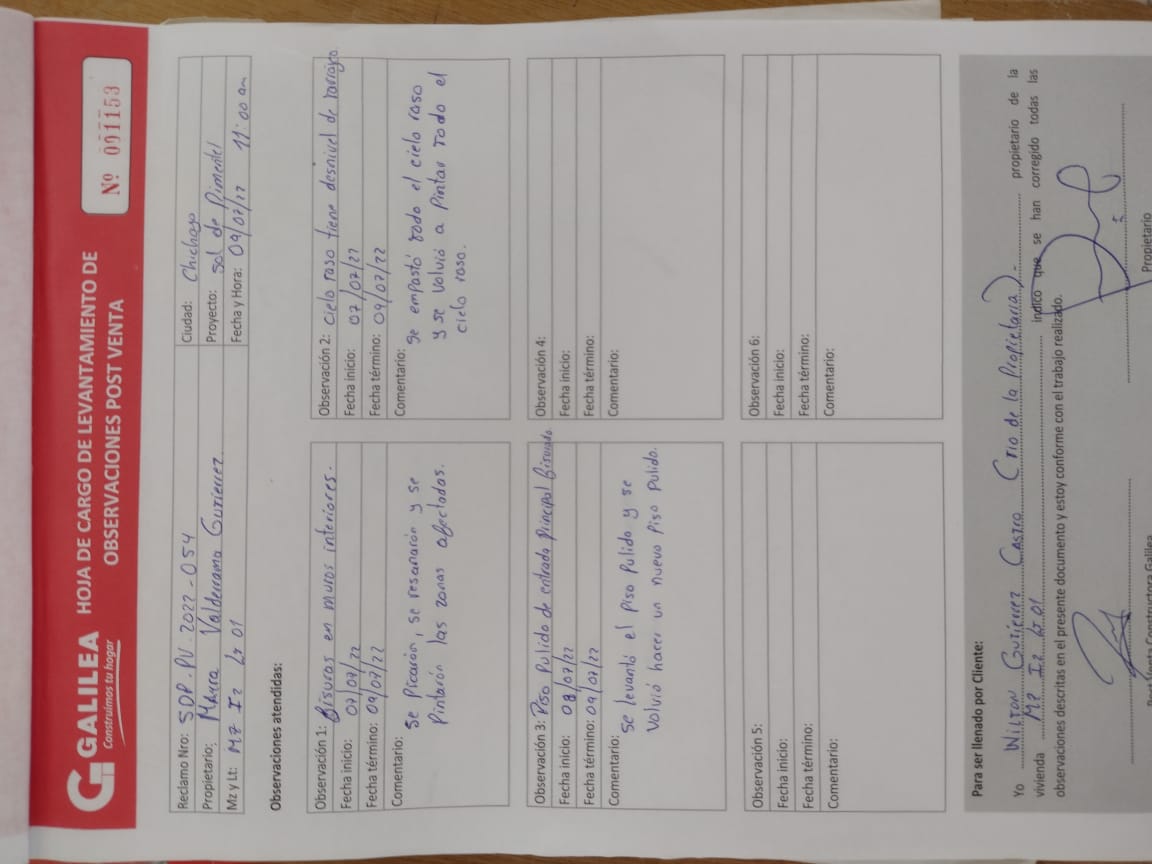 GALILEA
Construimos tu hogar
HOJA DE CARGO DE LEVANTAMIENTO DE
OBSERVACIONES POST VENTA
Nº 001153
Reclamo Nro: SDP.PV.2022-054
Ciudad: Chiclayo
Propietario: Mayra Valderrama Gutierrez
Proyecto: Sol de Pimentel
Mz y Lt: Mz I2 Lt 01
Fecha y Hora: 09/07/22 11:00 am
Observaciones atendidas:
Observación 1: Fisuras en muros interiores.
Fecha inicio: 07/07/22
Fecha término: 09/07/22
Comentario:
Se Picarón, se resanarón y se
Pintarón las zonas afectadas.
Observación 2: Cielo raso tiene desnivel de tarrajeo
Fecha inicio: 07/07/22
Fecha término: 09/07/22
Comentario:
Se empastó todo el cielo raso
y se volvió a Pintar todo el
cielo raso.
Observación 3: Piso Pulido de entrada Principal fisurado
Fecha inicio: 08/07/22
Fecha término: 09/07/22
Comentario:
Se levantó el Piso Pulido y se
Volvió hacer un nuevo Piso Pulido.
Observación 4:
Fecha inicio:
Fecha término:
Comentario:
Observación 5:
Fecha inicio:
Fecha término:
Comentario:
Observación 6:
Fecha inicio:
Fecha término:
Comentario:
Para ser llenado por Cliente:
Yo Wilton Gutierrez Castro (Tio de la Propietaria). propietario de la
vivienda Mz I2 Lt 01 indico que se han corregido todas las
observaciones descritas en el presente documento y estoy conforme con el trabajo realizado.
Post Venta Constructora Galilea
Propietario